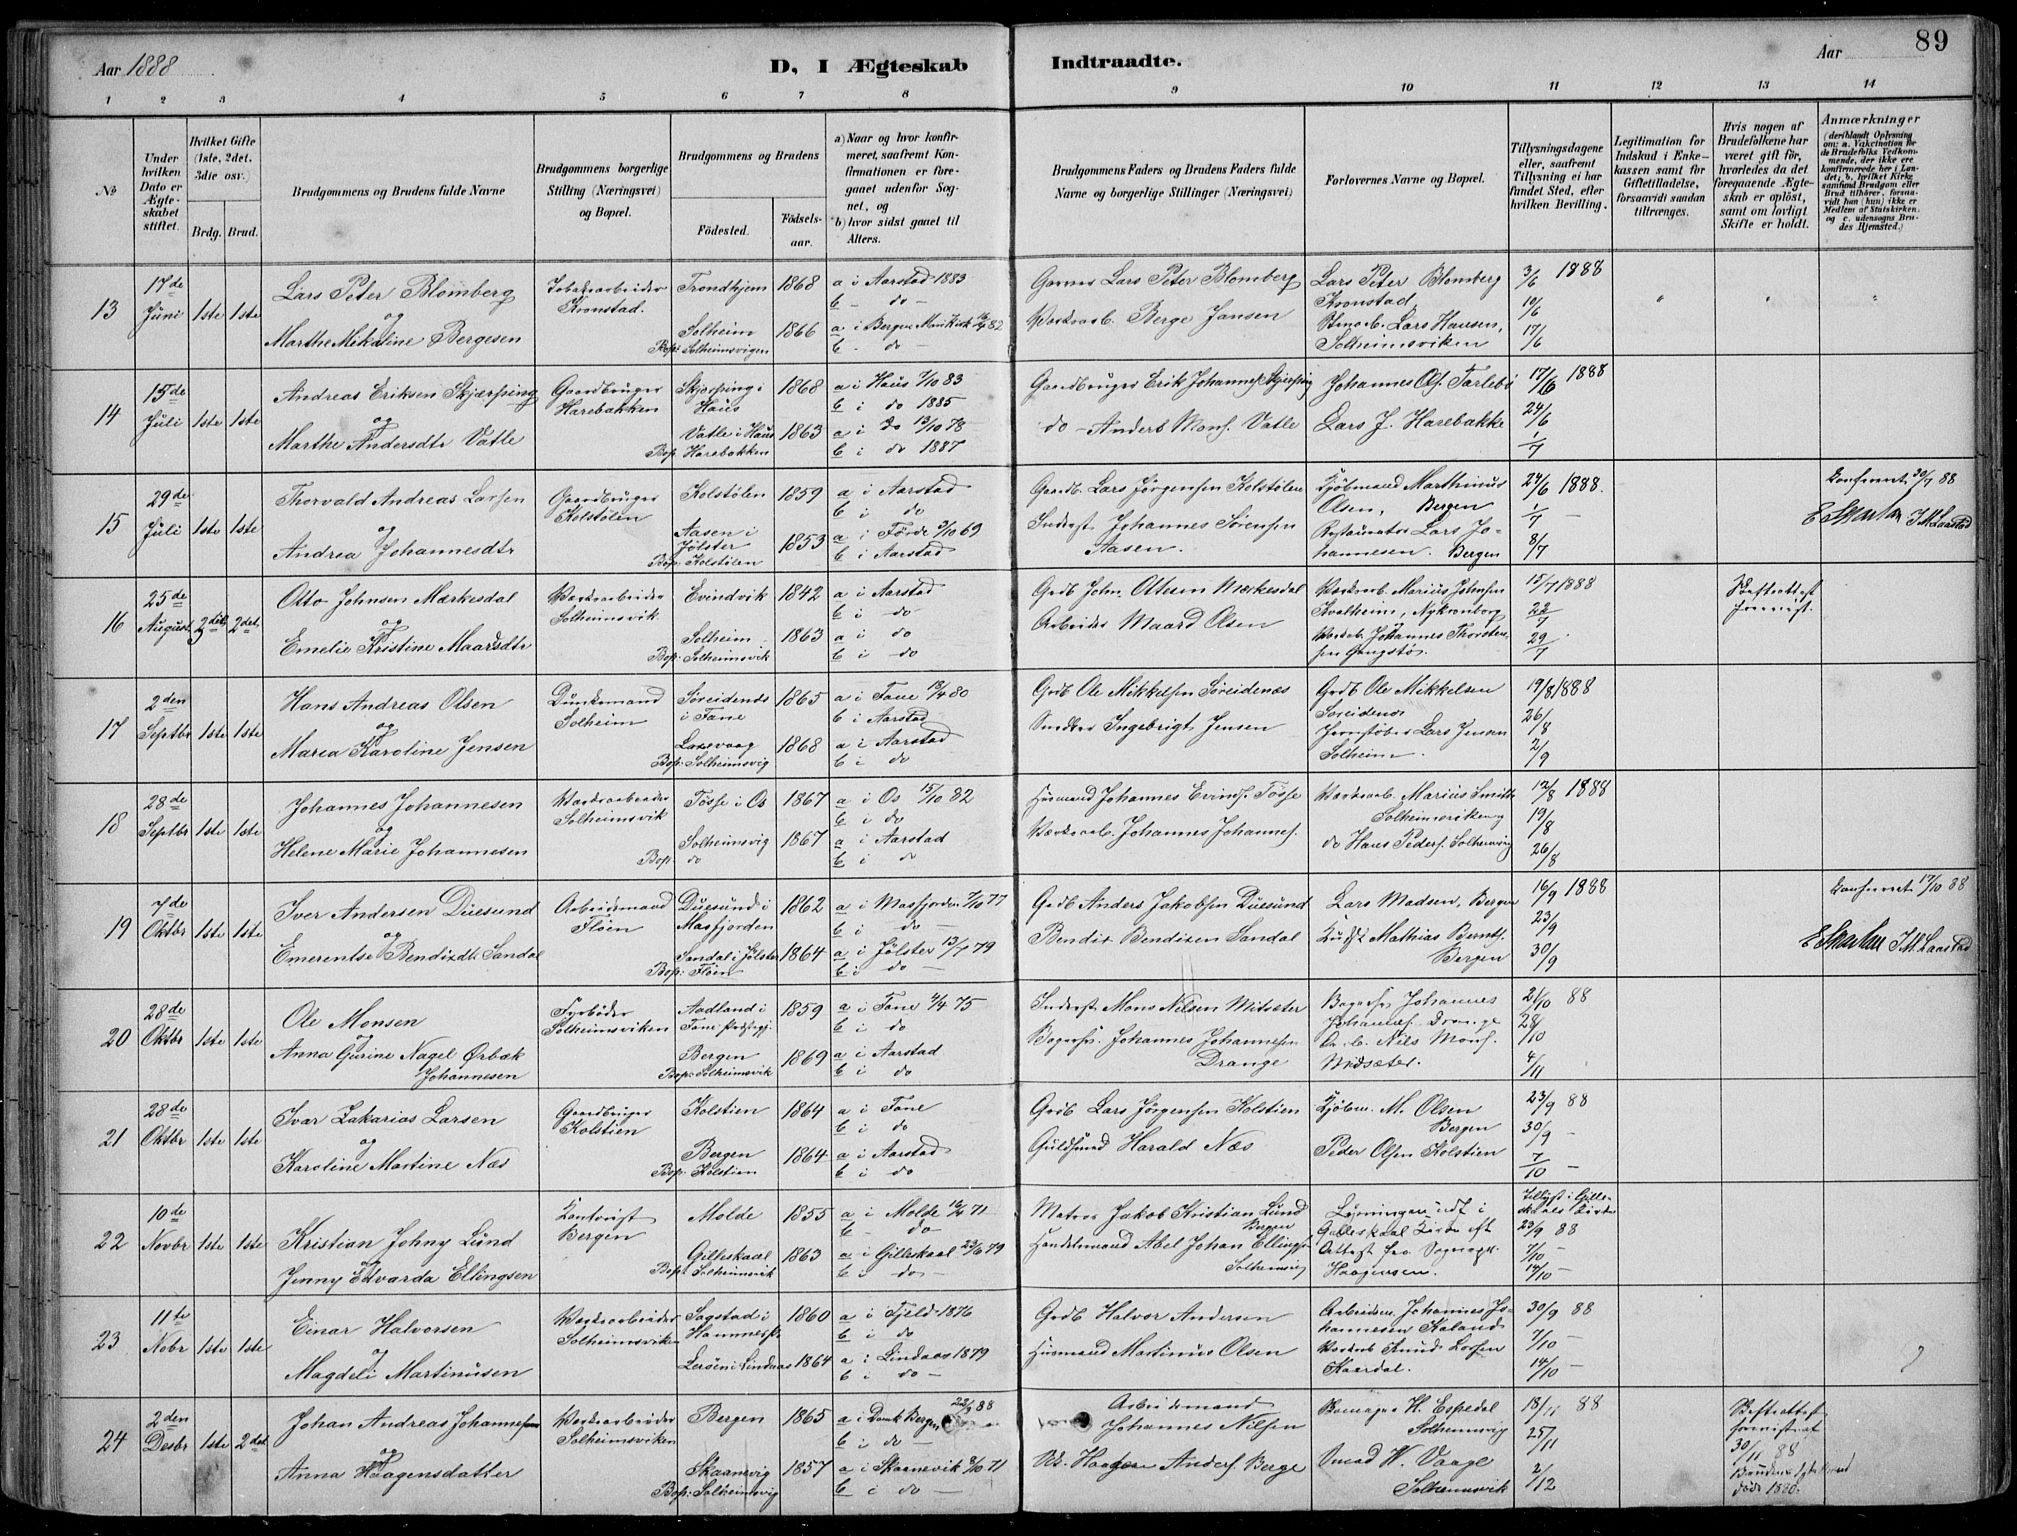 Aar 1888
D, I Ægteskab Indtraadte.
Aar
89
1 2 3 4 5 6 7 8 9 10 11 12 13 14
№
Under hvilken Dato er Ægteskabet stiftet.
Hvilket Gifte (1ste, 2det, 3die osv.)
Brdg. Brud.
Brudgommens og Brudens fulde Navne
Brudgommens borgerlige Stilling (Næringsvei) og Bopæl.
Brudgommens og Brudens
Födested. Födselsaar.
a) Naar og hvor konfirmeret, saafremt Konfirmationen er foregaaet udenfor Sognet, og
b) hvor sidst gaaet til Alters.
Brudgommens Faders og Brudens Faders fulde Navne og borgerlige Stillinger (Næringsvei)
Forlovernes Navne og Bopæl.
Tillysningsdagene eller, saafremt Tillysning ei har fundet Sted, efter hvilken Bevilling.
Legitimation for Indskud i Enkekassen samt for Giftetilladelse, forsaavidt saadan tiltrænges.
Hvis nogen af Brudefolkene har været gift för, hvorledes da det foregaaende Ægteskab er oplöst, samt om lovligt Skifte er holdt.
Anmærkninger (deriblandt Oplysning om: a. Vakcination for de Brudefolks Vedkommende, der ikke ere konfirmerede her i Landet, b. hvilket Kirkesamfund Brudgom eller Brud tilhörer, forsaavidt han (hun) ikke er Medlem af Statskirken, og c. udensogns Brudes Hjemsted.)
13 17de Juni 1ste 1ste
Lars Peter Blomberg
og
Marthe Mikaline Bergesen
Kronstad.
Trondhjem 1868 a i Aarstad 1883
b - do -
Solheim 1866
Bop: Solheimsvigen b - do -
Lars Peter Blomberg
Berge Jansen
Lars Peter Blomberg
Kronstad
Lars Hansen,
Solheimsviken
3/6 1888
10/6
17/6
14 15de Juli 1ste 1ste
Andreas Eriksen Skjærping
og
Marthe Andersdtr Vatle
Gaardbruger
Harebakken
Skjærping i Haus 1868 a i Haus 7/10 83
b i do 1885
Vatle i Haus 1863 a i do 13/10 78
Bop: Harebakken b i do 1887
Gaardbruger Erik Johannes. Skjerping
do - Anders Mons. Vatle
Johannes Ol. Tarlebø
Lars J. Harebakke
17/6 1888
24/6
1/7
15 29de Juli 1ste 1ste
Thorvald Andreas Larsen
og
Andrea Johannesdtr
Gaardbruger
Kolstølen
Kolstølen 1859 a i Aarstad
b i do
Aasen i Jølster 1853 a i Førde 3/10 69
Bop: Kolstølen b i Aarstad
Gaardb. Lars Jørgensen Kolstølen
Inderst Johannes Sørensen
Aasen.
Kjøbmand Marthinus
Olsen, Bergen
Restauratør Lars Johannesen. Bergen
24/6 1888.
1/7 -
8/7
Konfereret 30/7 88
16 25de August 2det 2det
Otto Johnsen Mærkesdal
og
Emelie Kristine Maarsdtr
Værksarbeider
Solheimsvik
Evindvik 1842 a i Aarstad
b i do
Solheim 1863 a i do
Bop: Solheimsvik b i do
Grdb John. Ottesen Mærkesdal
Arbeider Maard Olsen
Værksarb. Marius Johnsen
Svalheim, Nykronborg
Værksarb. Johannes Thorstensen Gangstø.
15/7 1888
22/7
29/7
Skifteattest
forevist.
17 2den Septbr 1ste 1ste
Hans Andreas Olsen
og
Maria Karoline Jensen
Dunkemand
Solheim
Søreidenæs i Fane 1865 a i Fane 18/4 80
b i Aarstad
Laxevaag 1868 a i Aarstad
Bop: Solheimsvig b i do
Grdb Ole Mikkelsen Søreidenæs
Snedker Ingebrigt Jensen
Grdb Ole Mikkelsen
Søreidenæs
Jernstøber Lars Jensen
Solheim
19/8 1888
26/8
2/9
18 28de Septbr 1ste 1ste
Johannes Johannesen
og
Helene Marie Johannesen
Værksarbeider
Solheimsvik
Tøsse i Os 1867 a i Os 15/10 82
b i do
Solheimsvig 1867 a i Aarstad
Bop: do b i do
Husmand Johannes Evinds. Tøsse
Værksarb. Johannes Johannes.
Værksarb. Marius Smith
Solheimsviken
do Hans Peders. Solheimsvig
12/8 1888
19/8
26/8
19 7de Oktbr 1ste 1ste
Iver Andersen Duesund
og
Emerentse Bendixdtr Sandal
Arbeidsmand
Fløen
Duesund i Masfjorden 1862 a i Masfjorden 7/10 77
b i do -
Sandal i Jølster 1864 a i Jølster 13/7 79
Bop: Fløen b i do -
Grdb Anders Jakobsen Duesund
Bendix Bendixen Sandal
Lars Madsen, Bergen
Mathias Bernts.
Bergen
16/9 1888
23/9
30/9
Konfereret 17/10 88
20 28de Oktbr 1ste 1ste
Ole Monsen
og
Anna Gurine Nagel Ørbæk
Johannesen
Fyrbøder
Solheimsviken
Aadland i Fane Præstegj. 1859 a i Fane 4/4 75
b i do
Bergen 1869 a i Aarstad
Bop: Solheimsvik b i do
Inderst Mons Nilsen Midsæter
Johannes Johannesen
Drange
Johannes
Johannes. Drange
Nils Mons.
Midsæter.
21/10 88
28/10
4/11
21 28de Oktbr 1ste 1ste
Ivar Zakarias Larsen
og
Karoline Martine Næs
Gaardbruger
Kolstien
Kolstien 1864 a i Fane
b i do
Bergen 1864 a i Aarstad
Bop: Kolstien b i do
Grdb Lars Jørgensen Kolstien
Guldsmed Harald Næs
Kjøbm. M. Olsen
Bergen
Peder Olsen Kolstien
23/9 88
30/9 -
7/10 -
22 10de Novbr 1ste 1ste
Kristian Johny Lund
Jenny Edvarda Ellingsen
Kontorist
Bergen
Molde 1855 a i Molde 16/4 71
b - do
Gilleskaal 1863 a i Gilleskaal 23/6 79
Bop: Solheimsvik b i do -
Matros Jakob Kristian Lund
Bergen
Handelsmand Abel Johan Ellingsen
Solheimsvig
Lysningen udf i
Gilleskaal Kirke eft
Attest fra Sognepr.
Haagensen.
Tillyst i Gilleskaals Kirke
23/9 88
7/10 -
14/10 -
23 11te Nobr 1ste 1ste
Einar Halvorsen
og
Magdeli Martinusen
Værksarbeider
Solheimsviken
Sagstad i Hammer 1860 a i Fjeld 1876
b i do
Lersøn i Lindaas 1864 a i Lindaas 1879
b i do -
Grdb Halvor Andersen
Husmand Martinus Olsen
Arbeidsm. Johannes Johannesen Kaland
Værksarb Amund Larsen
Kaardal.
30/9 88
7/10 -
14/10 -
24 2den Desbr 1ste 2det
Johan Andreas Johannesen
og
Anna Haagensdatter
Værksarbeider
Solheimsviken
Bergen 1865 a i Domk Bergen 22/9 88
b i do -
Skaanevig 1857 a i Skaanevik 8/10 71
Bop: Solheimsvig b i do -
Arbeidsmand
Johannes Nilsen
Haagen Anders. Berge
H. Espedal
Solheimsvig
W. Vaage
Solheimsvik
18/11 88
25/11
2/12
Skifteattest
forevist af
30/11 88
død 1880.